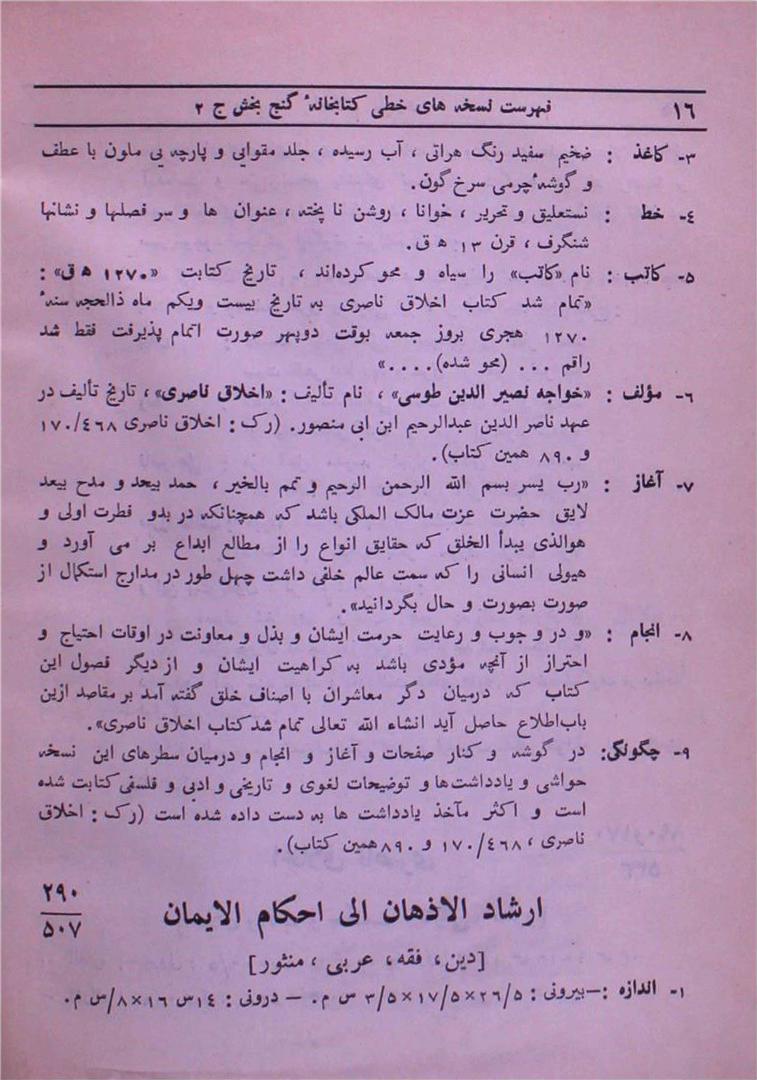 ۱۶ فهرست نسخه های خطی کتابخانهٔ گنج بخش ج ۲
۳- کاغذ : ضخیم سفید رنگ هراتی ، آب رسیده ، جلد مقوایی و پارچه یی ملون با عطف
و گوشهٔ چرمی سرخ گون.
۴- خط : نستعلیق و تحریر ، خوانا ، روشن نا پخته ، عنوان ها و سر فصلها و نشانها
شنگرف ، قرن ۱۳ ه ق.
۵- کاتب : نام «کاتب» را سیاه و محو کرده‌اند ، تاریخ کتابت «۱۲۷۰ ه ق» :
«تمام شد کتاب اخلاق ناصری به تاریخ بیست ویکم ماه ذالحجه سنهٔ
۱۲۷۰ هجری بروز جمعه بوقت دوپهر صورت اتمام پذیرفت فقط شد
راقم ... (محو شده)....»
۶- مؤلف : «خواجه نصیر الدین طوسی» ، نام تألیف : «اخلاق ناصری» ، تاریخ تألیف در
عهد ناصر الدین عبدالرحیم ابن ابی منصور. (رک : اخلاق ناصری ۱۷۰/۴۶۸
و ۸۹۰ همین کتاب).
۷- آغاز : «رب یسر بسم الله الرحمن الرحیم و تمم بالخیر ، حمد بیحد و مدح بیعد
لایق حضرت عزت مالک الملکی باشد که همچنانکه در بدو فطرت اولی و
هوالذی یبدأ الخلق که حقایق انواع را از مطالع ابداع بر می آورد و
هیولی انسانی را که سمت عالم خلفی داشت چهل طور در مدارج استکمال از
صورت بصورت و حال بگردانید».
۸- انجام : «و در و جوب و رعایت حرمت ایشان و بذل و معاونت در اوقات احتیاج و
احتراز از آنچه مؤدی باشد به کراهیت ایشان و از دیگر فصول این
کتاب که درمیان دگر معاشران با اصناف خلق گفته آمد بر مقاصد ازین
باب اطلاع حاصل آید انشاء الله تعالی تمام شد کتاب اخلاق ناصری».
۹- چگونگی: در گوشه و کنار صفحات و آغاز و انجام و درمیان سطرهای این نسخه
حواشی و یادداشت‌ها و توضیحات لغوی و تاریخی و ادبی و فلسفی کتابت شده
است و اکثر مآخذ یادداشت ها به دست داده شده است (رک : اخلاق
ناصری ، ۱۷۰/۴۶۸ و ۸۹۰ همین کتاب).
۲۹۰
ارشاد الاذهان الی احکام الایمان
۵۰۷
[دین، فقه، عربی ، منثور]
۱- اندازه :-بیرونی : ۲۶/۵×۱۷/۵×۳/۵ س م. - درونی : ۱۴س ۱۶×۸/س م.